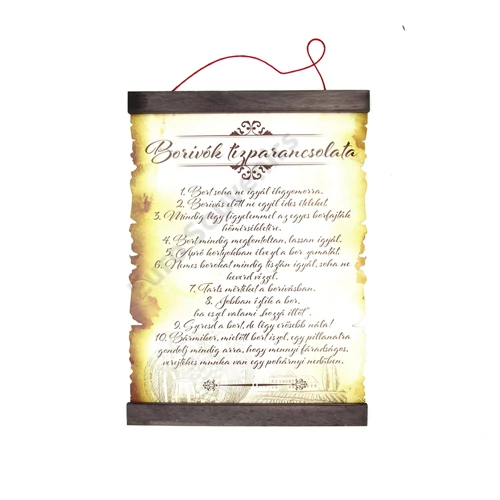 Borivók tízparancsolata
1. Bort soha ne igyál éhgyomorra.
2. Borivás előtt ne egyél édes ételeket.
3. Mindig légy figyelemmel az egyes borfajták
hőmérsékletére.
4. Bort mindig megfontoltan, lassan igyál.
5. Apró kortyokban élvezd a bor zamatát.
6. Nemes borokat mindig tisztán igyál, soha ne
keverd vízzel.
7. Tarts mértéket a borivásban.
8. Jobban ízlik a bor,
ha eszel valami "hozzá illőt".
9. Szeresd a bort, de légy erősebb nála!
10. Bármikor, mielőtt bort iszol, egy pillanatra
gondolj mindig arra, hogy mennyi fáradságos,
verejtékes munka van egy pohárnyi nedűben.